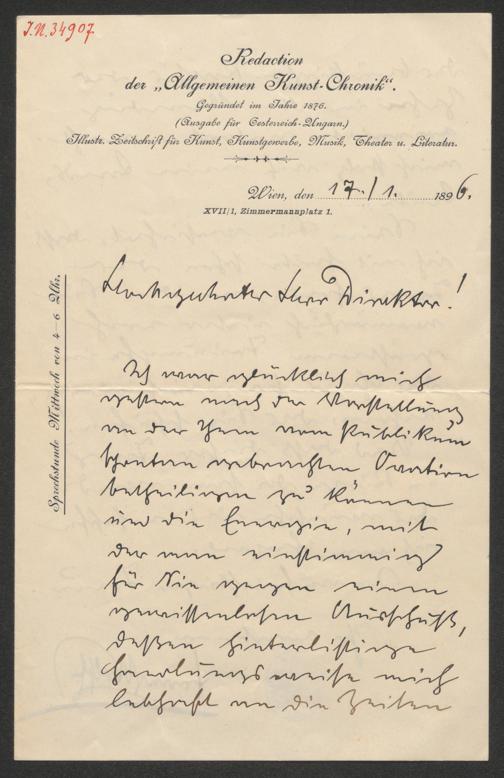 J.N. 34907
Redaction
der „Allgemeinen Kunst-Chronik“.
Gegründet im Jahre 1876.
(Ausgabe für Oesterreich-Ungarn.)
Illustr. Zeitschrift für Kunst, Kunstgewerbe, Musik, Theater u. Literatur.
Wien, den 17./1. 1896.
XVII/1, Zimmermannplatz 1.
Sprechstunde Mittwoch von 4–6 Uhr.
Hochgeehrter Herr Direktor!
Ich war glücklich mich
gestern nach der Vorstellung
an der Ihnen vom Publikum
spontan gebrachten Ovation
betheiligen zu können
und die Energie, mit
der man einstimmig
für Sie gegen einen
gewissenlosen Ausschuß,
deßen hinterlistige
Handlungsweise mich
lebhaft an die Zeiten